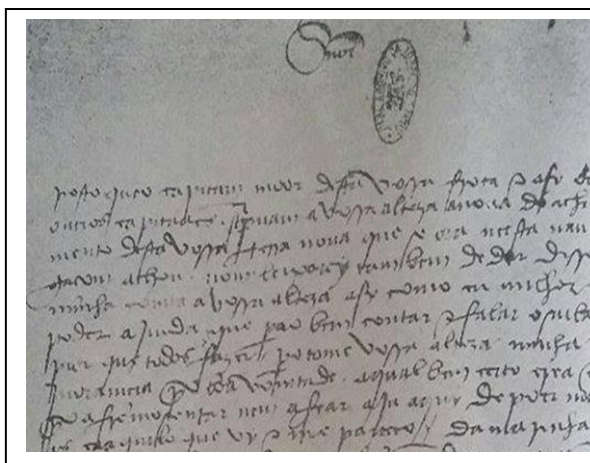 Snor
posto que o capitam moor desta vossa frota e asy os
outros capitaães screpuam a vossa alteza a noua do acha
mento desta vossa terra noua que se ora neesta naue
gaçam achou. nom leixarey tambem de dar disso
minha comta a vossa alteza asy como eu milhor
poder ajmda que pera o bem contar e falar o saiba
pior que todos fazer. pero tome vossa alteza minha
jnoramcia por boa vomtade. a qual bem certo crea
por afremosentar nem afear aja aquy de poer
ca aquilo que vy e me pareceo / da marinha